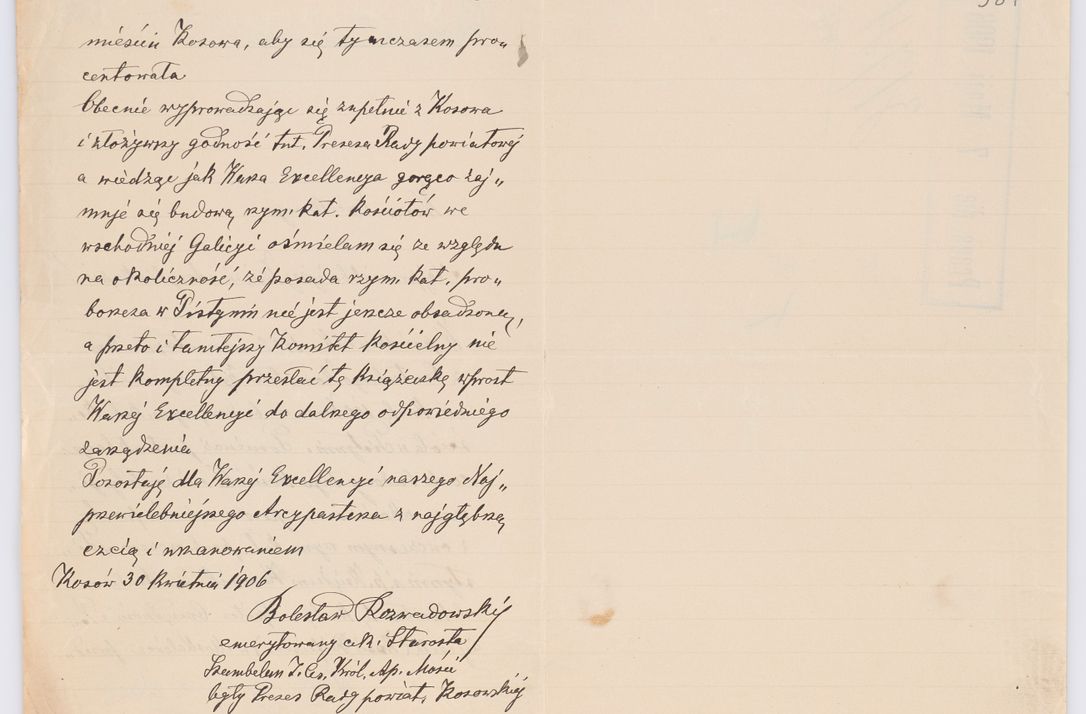 mieście Kosowa, aby się tymczasem pro„
centowała
Obecnie wyprowadzając się zupełnie z Kosowa
i złożywszy godność tut. Prezesa Rady powiatowej
a wiedząc jak Wasza Excellencya gorąco zaj„
muje się budową rzym. kat. Kościołów we
wschodniej Galicyi ośmielam się ze względu
na okoliczność, że posada rzym. kat. pro„
boszcza w Pistyniu nie jest jeszcze obsadzoną,
a przeto i tamtejszy Komitet Kościelny nie
jest kompletny przesłać tę książeczkę wprost
Waszej Excellencyi do dalszego odpowiedniego
zarządzenia
Pozostaję dla Waszej Excellencyi naszego Naj„
przewielebniejszego Arcypasterza z najgłębszą
czcią i uszanowaniem
Kosów 30 Kwietnia 1906
Bolesław Rozwadowski
emerytowany c.k. Starosta
Szambelan J. Ces. Król. Ap. Mości
były Prezes Rady powiat. Kosowskiej